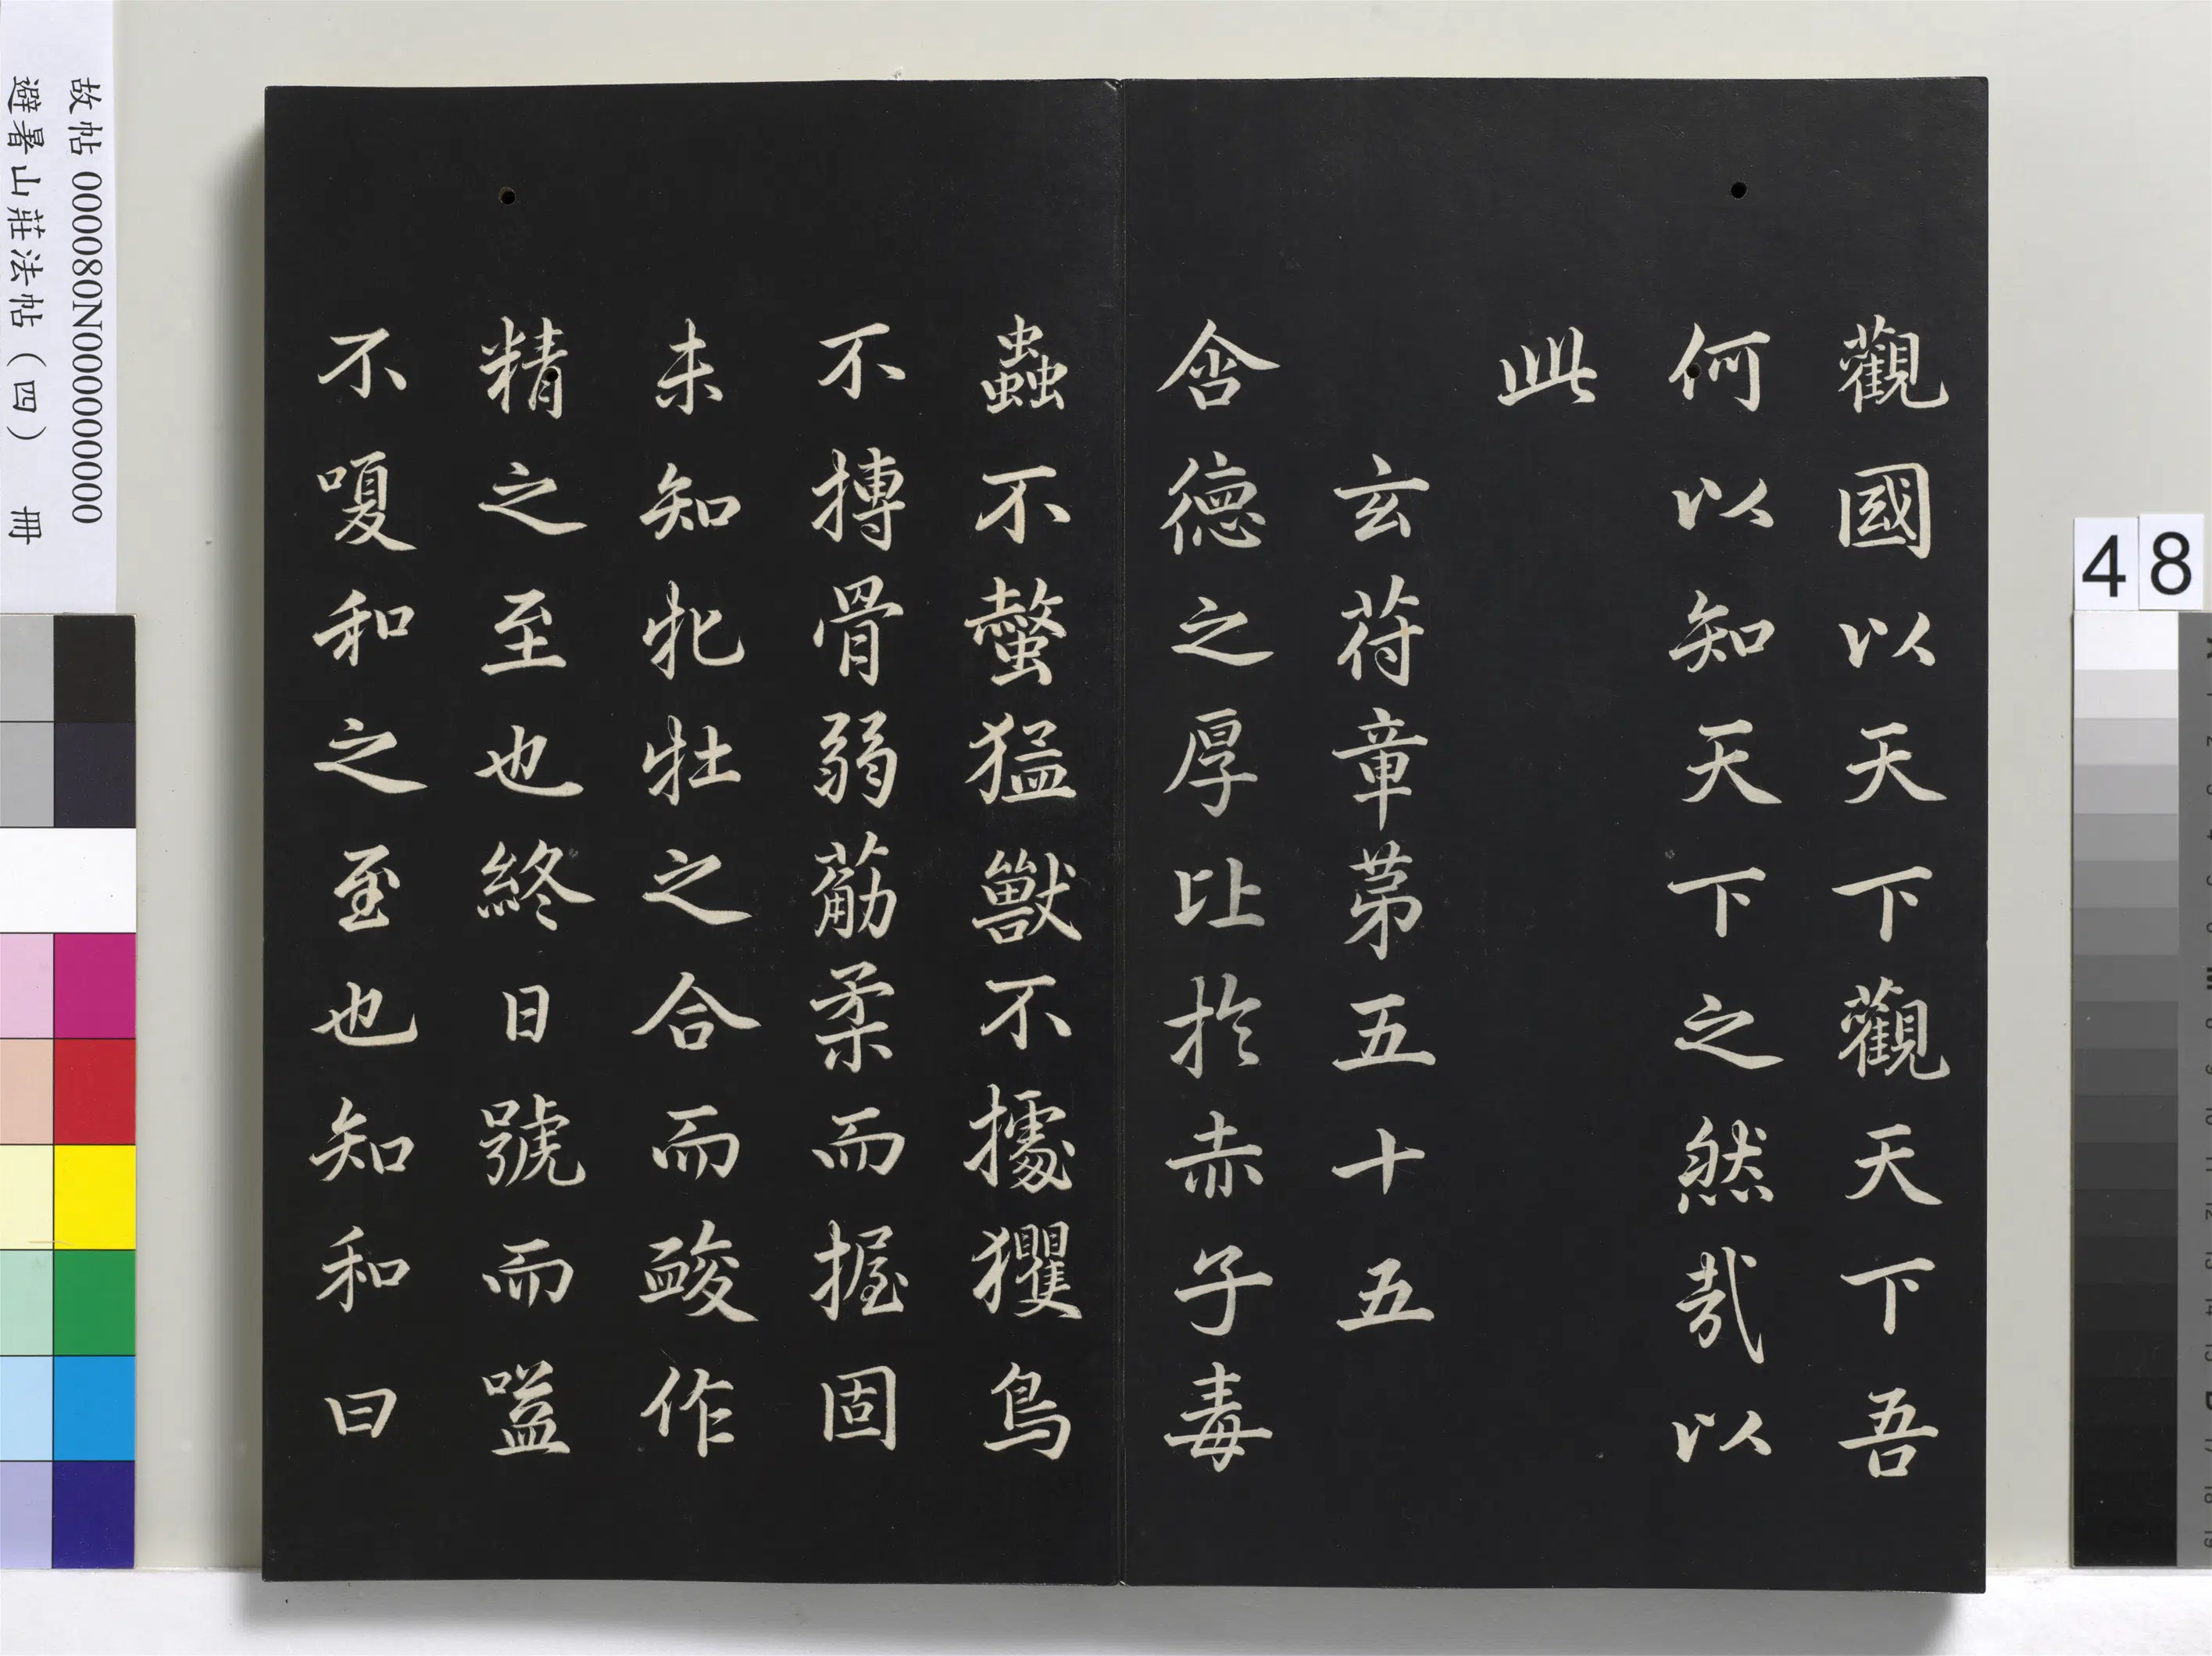 觀國以天下觀天下吾
何以知天下之然哉以
此
玄苻章苐五十五
含德之厚比於赤子毒
蟲不螫猛獸不據玃鳥
不摶骨弱觔柔而握固
未知牝牡之合而䘒作
精之至也終日號而嗌
不嗄和之至也知和曰
故帖 000080N000000000
避暑山莊法帖（四） 冊
48